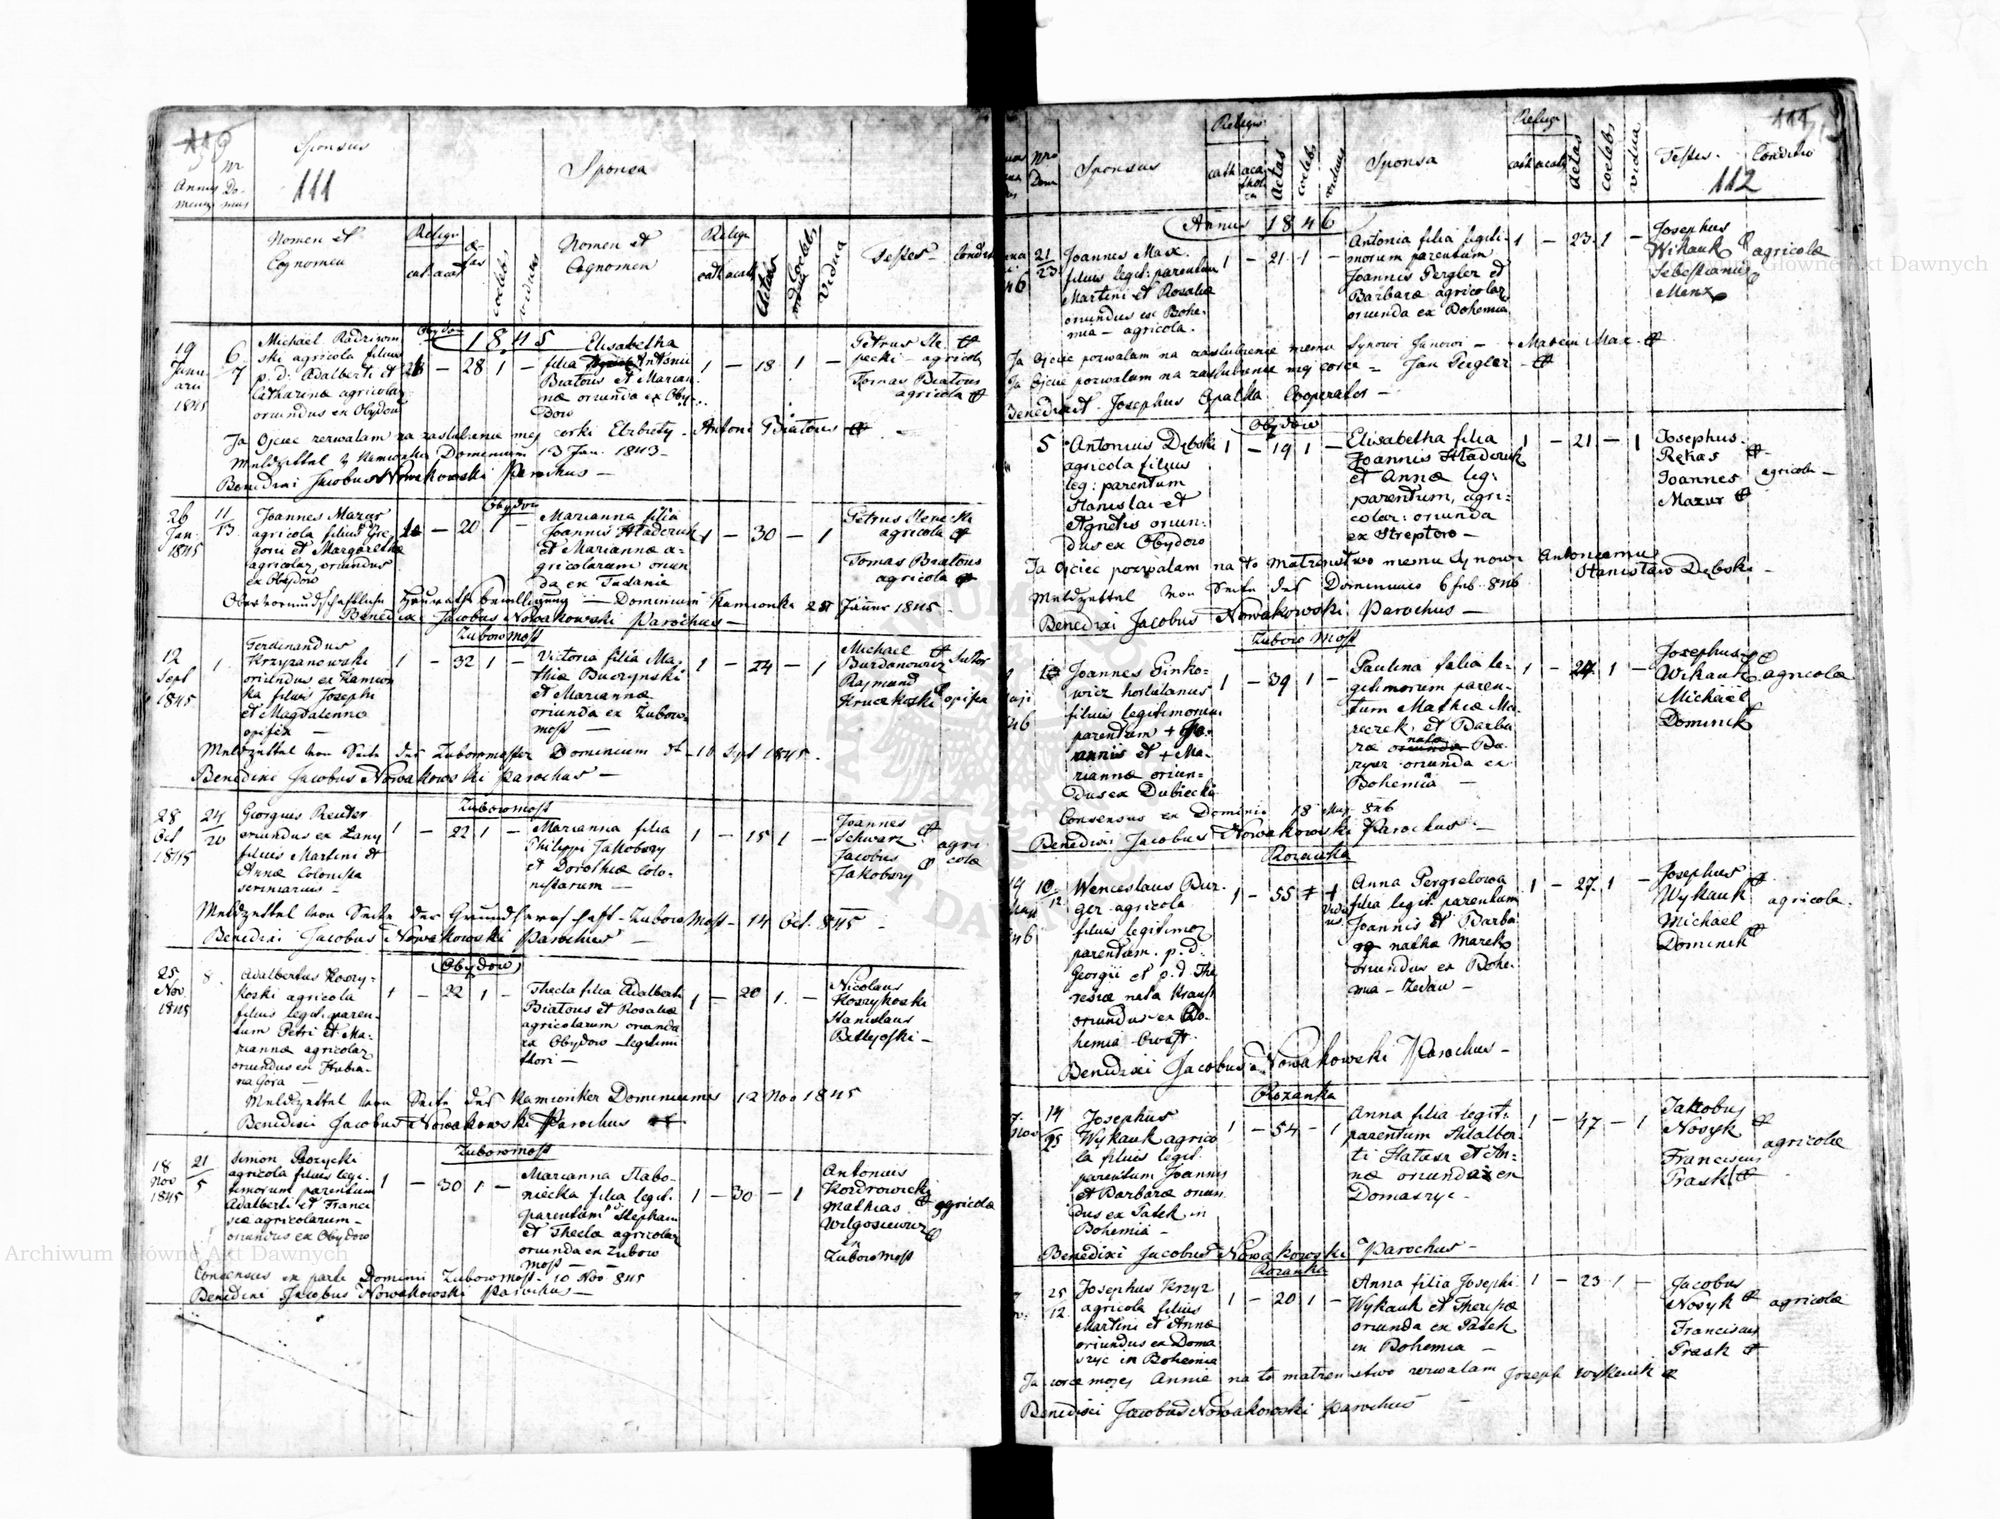 Sponsus
Sponsa
111
Nr
Do-
mus
Annus
Nomen et
Cognomen
Relig:
coelebs
viduus
Nomen et
Cognomen
Relig:
cath acath
Aetas
Coelebs
Vidua
Testes
Condit
Obydow
1845
19
Janu
arii
1845
6
7
Michael Radziwin
ski agricola filius
p. d. Adalberti et
Catharinæ agricolar
oriundus ex Obydow
— 28 1 —
Elisabetha
filia Antonii
Białous et Marian
næ oriunda ex Oby-
dow
1 — 18 1 —
Petrus Ste
pecki agricola
Tomas Białous
agricola
Ja Ojciec zezwalam na zaslubienie mej corki Elzbiety - Antoni Białous
Meldzettel z Kamionka Dominium 13 Jan. 1843 -
Benedixi Jacobus Nowakowski Parochus —
Obydow
26
Jan
1845
11
13
Joannes Mazur
agricola filius Gre
gorii et Margarethæ
agricolar, oriundus
ex Obydow
— 20 1 —
Marianna filia
Joannis Hladczuk
et Mariannæ a-
gricolarum oriun
da ex Tadania
1 — 30 — 1
Petrus
agricola
Tomas Białous
agricola
Obervormundschaftliche Heuraths bewilligung — Dominium Kamionka 25t Jäner 1845
Benedixi Jacobus Nowakowski Parochus —
Zubowmost
12
Sept
1845
1
Ferdinandus
Krzyzanowski
oriundus ex Kamion
ka filius Josephi
et Magdalenna
opifex —
1 — 32 1 —
Victoria filia Ma-
thiæ Buczynski
et Mariannæ
oriunda ex Zubow-
most —
1 — 24 — 1
Michael
Burdanowicz Sutor
Rajmund
Kruczkoski opifex
Meldzettel von Seite des Zubowmoster Dominium dt 10 Sept 1845.
Benedixi Jacobus Nowakowski Parochus —
Zubowmost
28
Oct
1845
24
20
Georgius Reuter
oriundus ex Łany
filius Martini et
Annæ Colonista
scriniarius —
1 — 22 1 —
Marianna filia
Philippi Jakobovy
et Dorothiæ Colo-
nistarum —
1 — 15 1 —
Joannes
Schwarz
Jacobus
Jakobovy
agri
colæ
Meldzettel von Seite der Grundherrschaft - Zubow Most - 14 Oct. 845 -
Benedixi Jacobus Nowakowski Parochus —
Obydow
25
Nov
1845
8
Adalbertus Koszy-
koski agricola
filius legit: paren-
tum Petri et Ma-
riannæ agricolar
oriundus ex Hrubia-
na Gora —
1 — 22 1 —
Thecla filia Adalberti
Białous et Rosaliæ
agricolarum oriunda
ex Obydow - legitimi
thori —
1 — 20 1 —
Nicolaus
Koszykoski
Stanislaus
Meldzettel von Seite des Kamionker Dominiums 12 Nov 1845
Benedixi Jacobus Nowakowski Parochus
Zubowmost
18
Nov
1845
21
5
Simon Borycki
agricola filius legi-
timorum parentum
Adalberti et Franci
scæ agricolarum -
oriundus ex Obydow
1 — 30 1 —
Marianna Slabo-
niecka filia legit:
parentum Stephani
et Theclæ agricolar
oriunda ex Zubow
most —
1 — 30 — 1
Antonius
Mathias
agricolæ
ex
Zubowmost
Consensus ex parte Dominii Zubowmost - 10 Nov 845
Benedixi Jacobus Nowakowski Parochus —
Nro
Dom
Sponsus
Religio
cath
aca
thol
Aetas
coelebs
viduus
Sponsa
Religio
cath acath
Aetas
coelebs
vidua
Testes -
Conditio
112
Annus 1846
21
23
Joannes Max
filius legit: parentum
Martini et Rosaliæ
oriundus ex Bohe-
mia - agricola.
1 — 21 1 —
Antonia filia legiti-
morum parentum
Joannis Pergler et
Barbaræ agricolar
oriunda ex Bohemia
1 — 23 1 —
Josephus
Wikauk
Sebestianus
Menx
agricolæ
Ja Ojciec pozwalam na zaslubienie memu Synowi Janowi — Marcin Max.
Ja Ojciec pozwalam na zaslubienie mej corce = Jan Pergler
Benedixit Josephus Opalka Cooperator —
Obydow
5
Antonius Dębski
agricola filius
leg: parentum
Stanislai et
Agnetis oriun-
dus ex Obydow
1 — 19 1 —
Elisabetha filia
Joannis Hladczuk
et Annæ leg:
parentum, agri-
colar: oriunda
ex Streptow —
1 — 21 — 1
Josephus
Rękas
Joannes
Mazur
agricolæ
Ja Ojciec pozwalam na to matrenstwo memu Synowi Antoniemu
Stanisław Dębski -
Meldzettel von Seite des Dominiums 6 feb. 846
Benedixi Jacobus Nowakowski Parochus —
Zubow Most
46
Joannes Ginko-
wicz hortulanus
filius legitimorum
parentum + Jo-
annis et + Ma-
riannæ oriun-
dus ex Dubiecki
1 — 39 1 —
Paulina falia le-
gitimorum paren-
tum Mathiæ Ma-
et Barba
ræ nata
oriunda ex
Bohemia —
1 — 27 1 —
Josephus
Wikauk
Michael
Dominik
agricolæ
Consensus ex Dominio 18 Maj 846
Benedixi Jacobus Nowakowski Parochus —
Rozanka
46
10
12
Wenceslaus Bur-
ger agricola
filius legitimor
parentum. p. d.
Georgii et p. d. The
resiæ nata Kraus
oriundus ex Bo-
hemia
1 — 55
Vidu
us
Anna Pergrelowa
filia legit: parentum
Joannis et Barba
ræ natha Marek
oriundus ex Bohe-
mia -
1 — 27 1 —
Josephus
Wykauk
Michael
Dominik
agricola.
Benedixi Jacobus Nowakowski Parochus —
Rozanka
Nov
14
25
Josephus
Wykauk agrico
la filius legit:
parentum Joannis
et Barbaræ oriun
dus ex Patek in
Bohemia —
1 — 54 — 1
Anna filia legit:
parentum Adalber-
ti et An-
næ oriunda ex
Domazyc -
1 — 47 — 1
Jakobus
Nosyk
Franciscus
Prask
agricolæ
Benedixi Jacobus Nowakowski Parochus —
Rozanka
25
12
Josephus Krzyz
agricola filius
Martini et Annæ
oriundus ex Doma
szyc in Bohemia
1 — 20 1 —
Anna filia Josephi
Wykauk et Theresæ
oriunda ex Patek
in Bohemia —
1 — 23 1 —
Jacobus
Nosyk
Franciscus
Prask
agricolæ
Ja corce mojej Annie na to matrenstwo zezwalam Joseph Wykauk
Benedixi Jacobus Nowakowski Parochus —
Archiwum Główne Akt Dawnych
Archiwum Główne Akt Dawnych